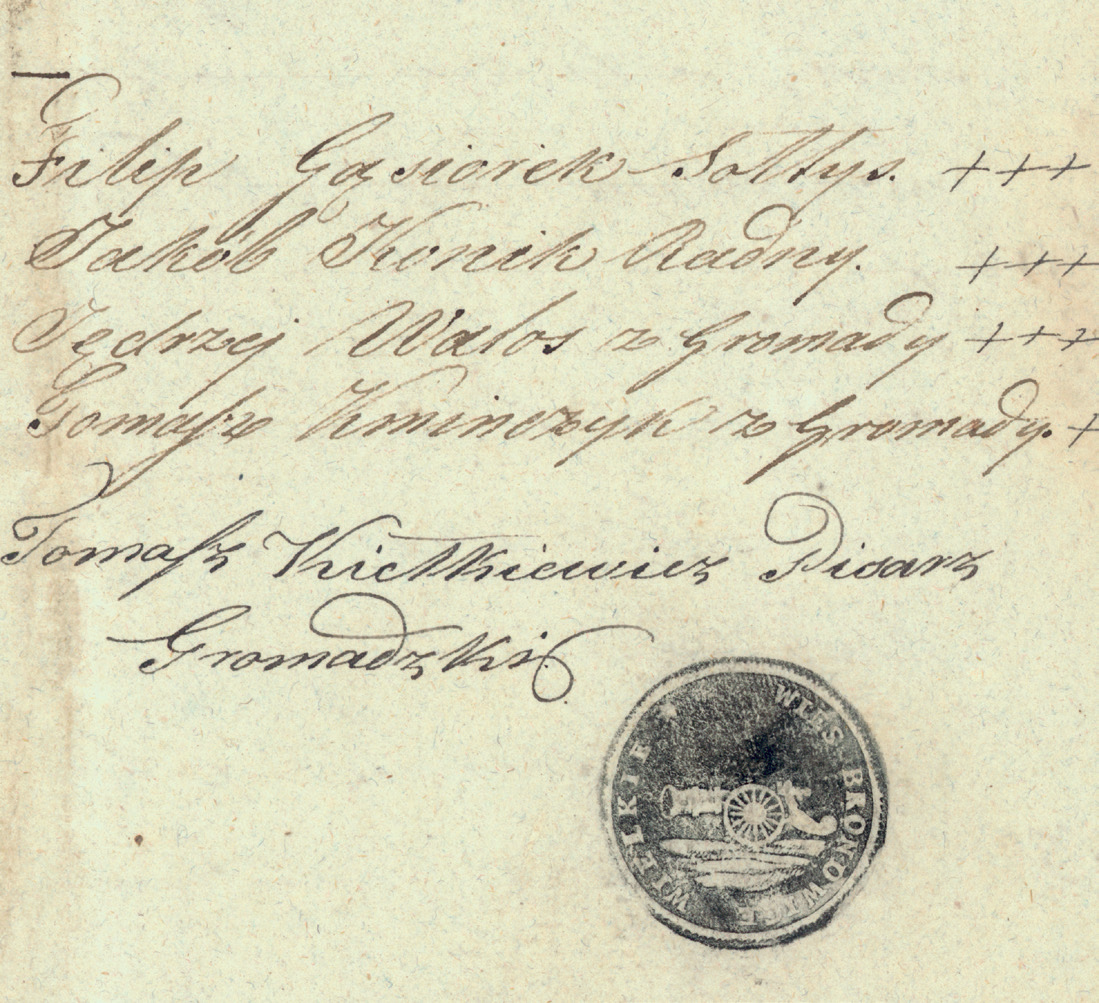 Filip Gąsiorek Sołtys. +++
Jakób Konik Radny. +++
Jędrzej Walos z Gromady +++
Tomasz Kminczyk z Gromady. +
Tomasz Kiełkiewicz Pisarz
Gromadzki
WIEŚ BRONOWICE WIELKIE